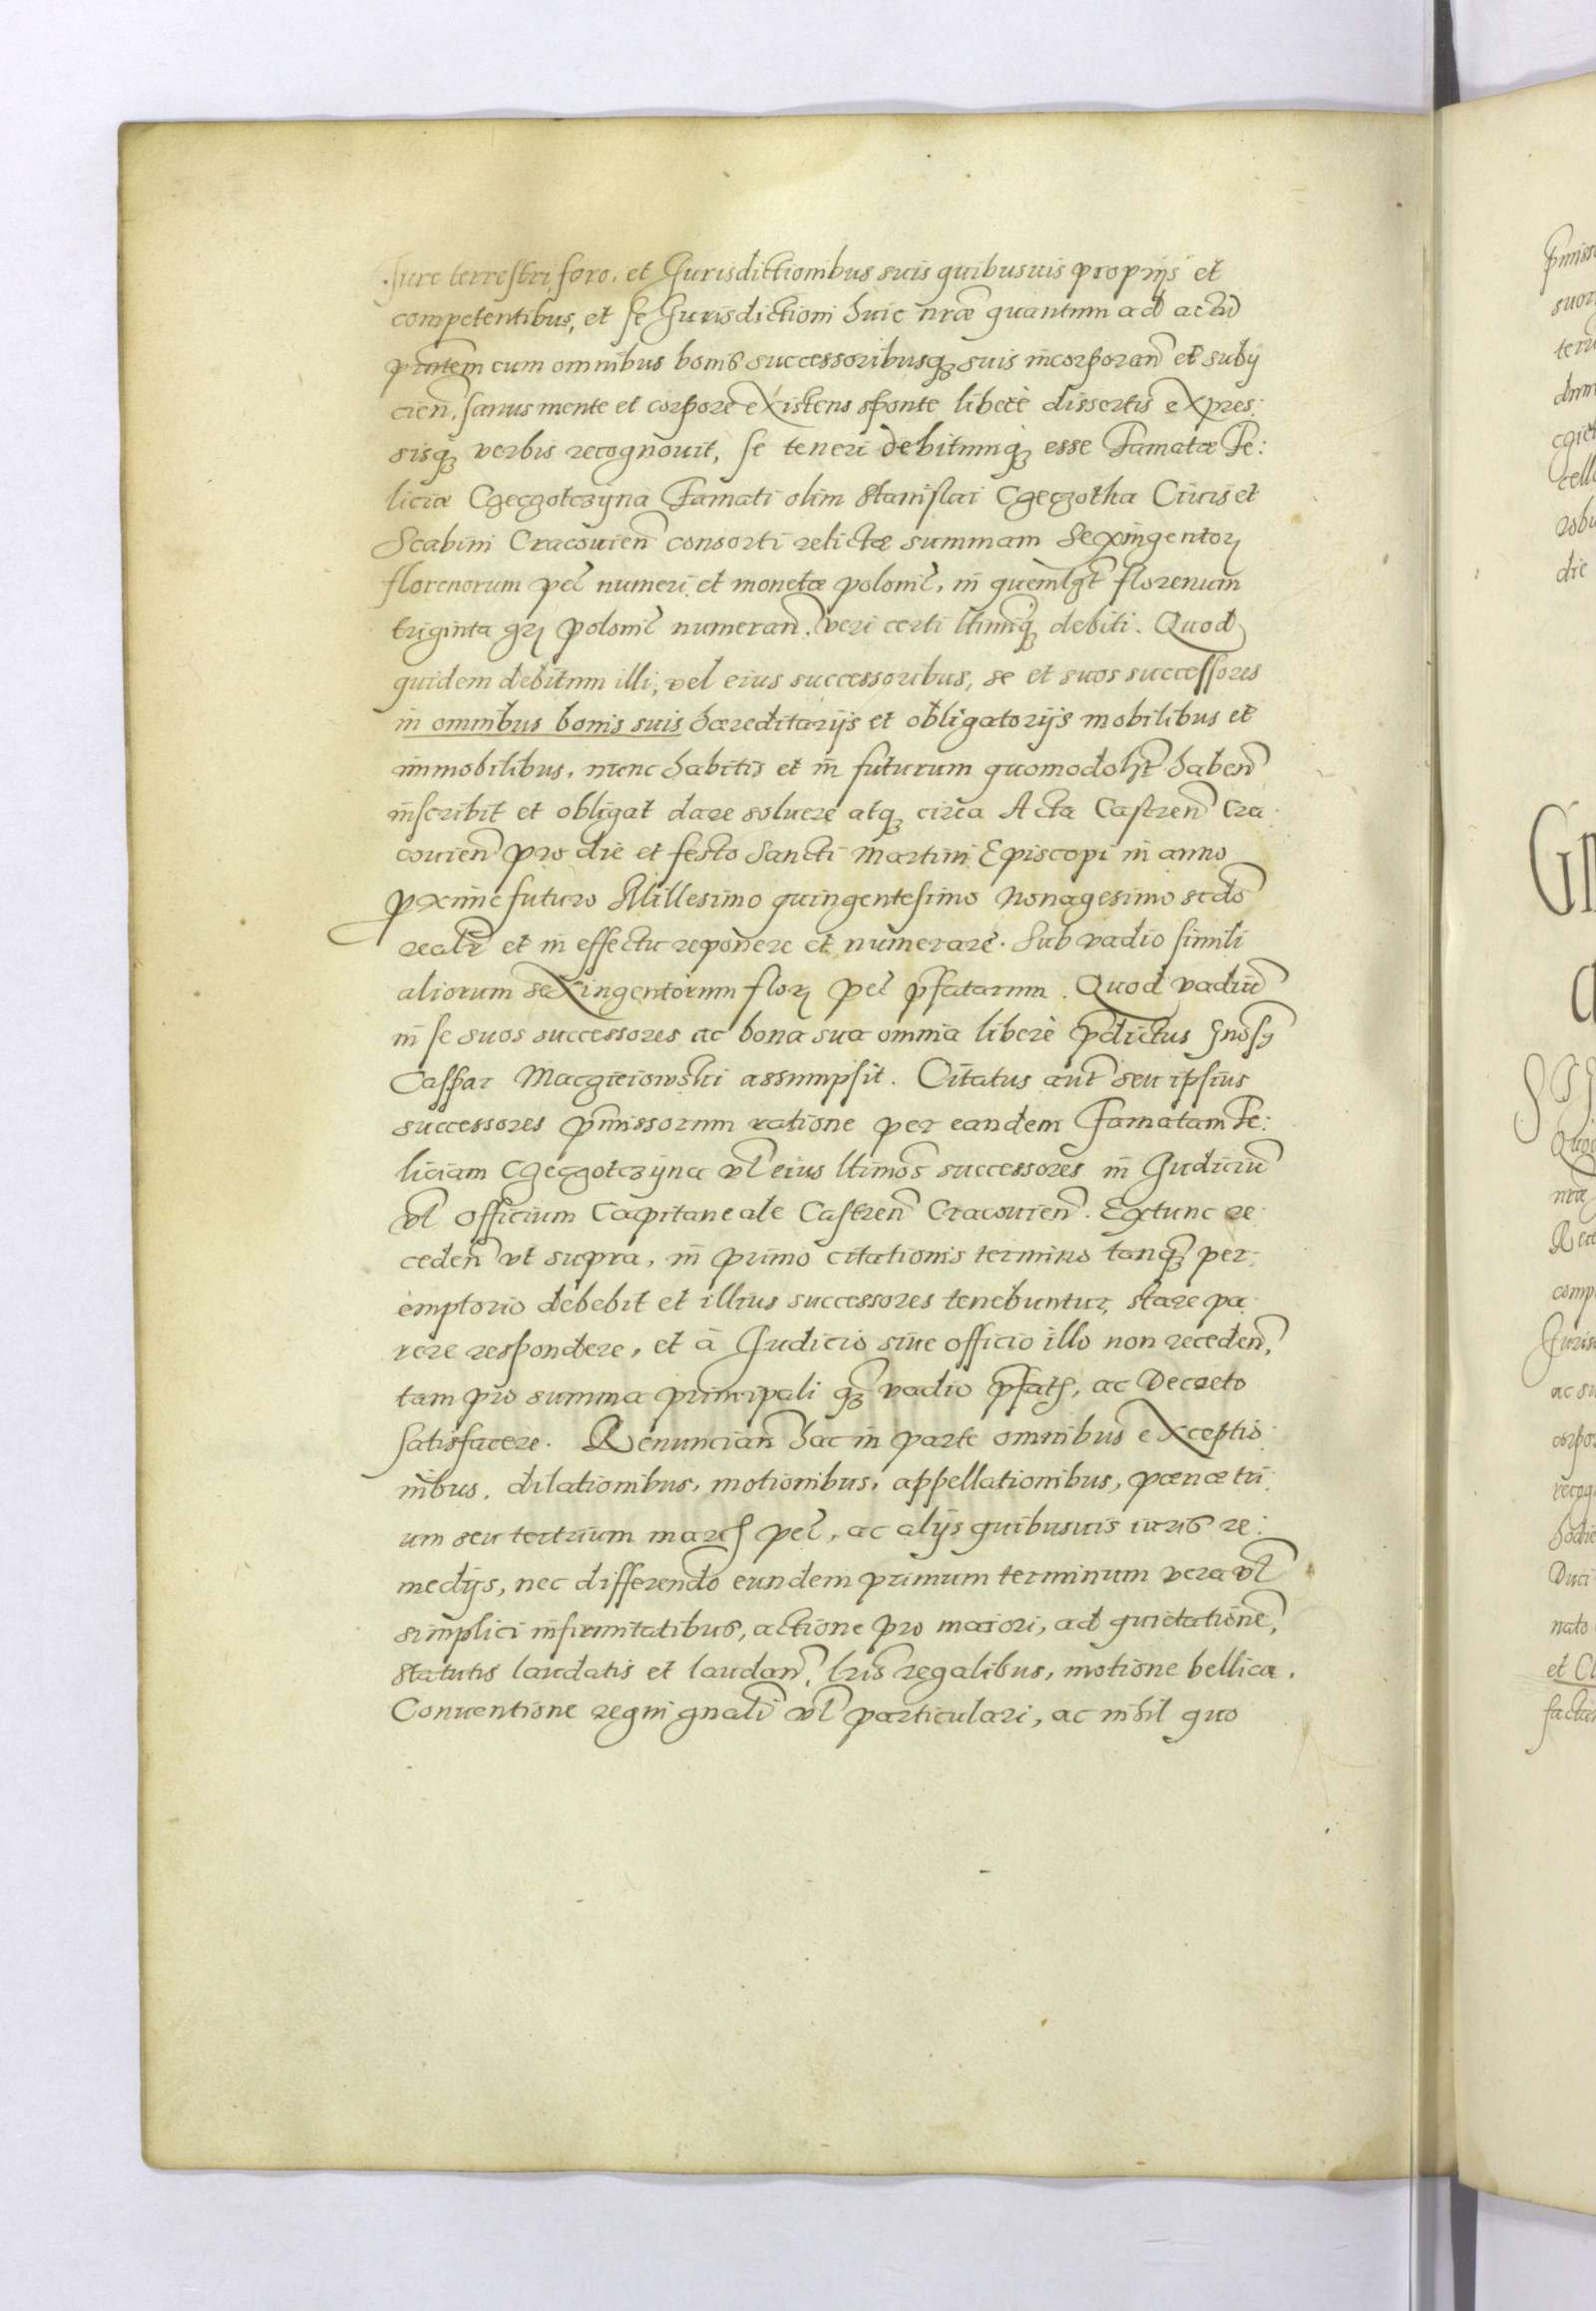 Jure terrestri, foro, et Jurisdictionibus suis quibusuis proprijs et
competentibus, et se Jurisdictioni huic nr̃æ quantum ad actũ
pñtem cum omnibus bonis successoribusq́ꝫ suis incorporañ et subij
cieñ, sanus mente et corpore existens sponte liberè dissertis expres:
sisq́ꝫ verbis recognouit, se teneri debitumq́ꝫ esse Famatæ Fe:
liciæ Czeczotczyna Famati olim Stanislai Czeczotha Ciuis et
Scabini Cracouieñ consorti relictæ summam Sexingentoꝝ
florenorum pec̃ numeri et monetæ polonic̃, in quemlꝫt florenum
triginta grꝭ polonic̃ numerañ. veri certi ltimiq́ꝫ debiti. Quod
quidem debitum illi, vel eius successoribus, se et suos successores
in omnibus bonis suis hæreditarijs et obligatorijs mobilibus et
immobilibus, nunc habitis et in futurum quomodolꝫt habeñ
inscribit et obligat dare soluere atqꝫ circa Acta Castreñ Cra
couieñ pro die et festo Sancti Martini Episcopi in anno
proxime futuro Millesimo quingentesimo Nonagesimo scdõ
realr̃ et in effectu reponere et numerare. Sub vadio simili
aliorum sexingentorum floꝝ pec̃ p̃fatarum. Quod vadiũ
in se suos successores ac bona sua omnia liberè p̃dictus Gnosꝯ
Caspar Macgieiowski assumpsit. Citatus aut̃ seu ipsius
successores p̃missorum ratione per eandem Famatam Fe:
liciam Czeczotczyna vl̃ eius ltimos successores in Judiciũ
vl̃ officium Capitaneale Castreñ Cracouieñ. Extunc re
cedeñ vt supra, in primo citationis termino tanqꝫ per
emptorio debebit et illius successores tenebuntur, stare pa
rere respondere, et à Judicio siue officio illo non recedeñ,
tam pro summa principali qꝫ vadio p̃fatꝭ, ac Decreto
satisfacere. Renuncianñ hac in parte omnibus exceptio
nibus, dilationibus, motionibus, appellationibus, pœnæ tri
um seu tertrium marcꝭ pec̃, ac alijs quibusuis iuris re:
medijs, nec differendo eundem primum terminum vera vl̃
simplici infirmitatibus, actione pro maiori, ad quietationẽ,
statutis laudatis et laudañ, lr̃is regalibus, motione bellica.
Conuentione regni gnali vl̃ particulari, ac nihil quo